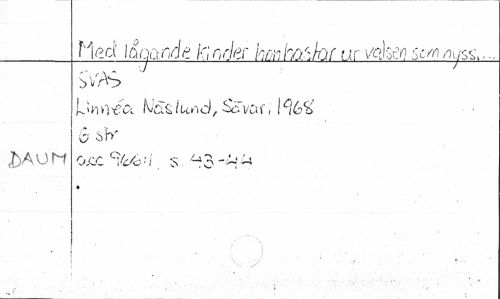 Med lågande kinder hon hastar ur valsen som nyss....
SVAS
Linnéa Näslund, Sävar, 1968
6 str
DAUM acc 966:1 s 43-44